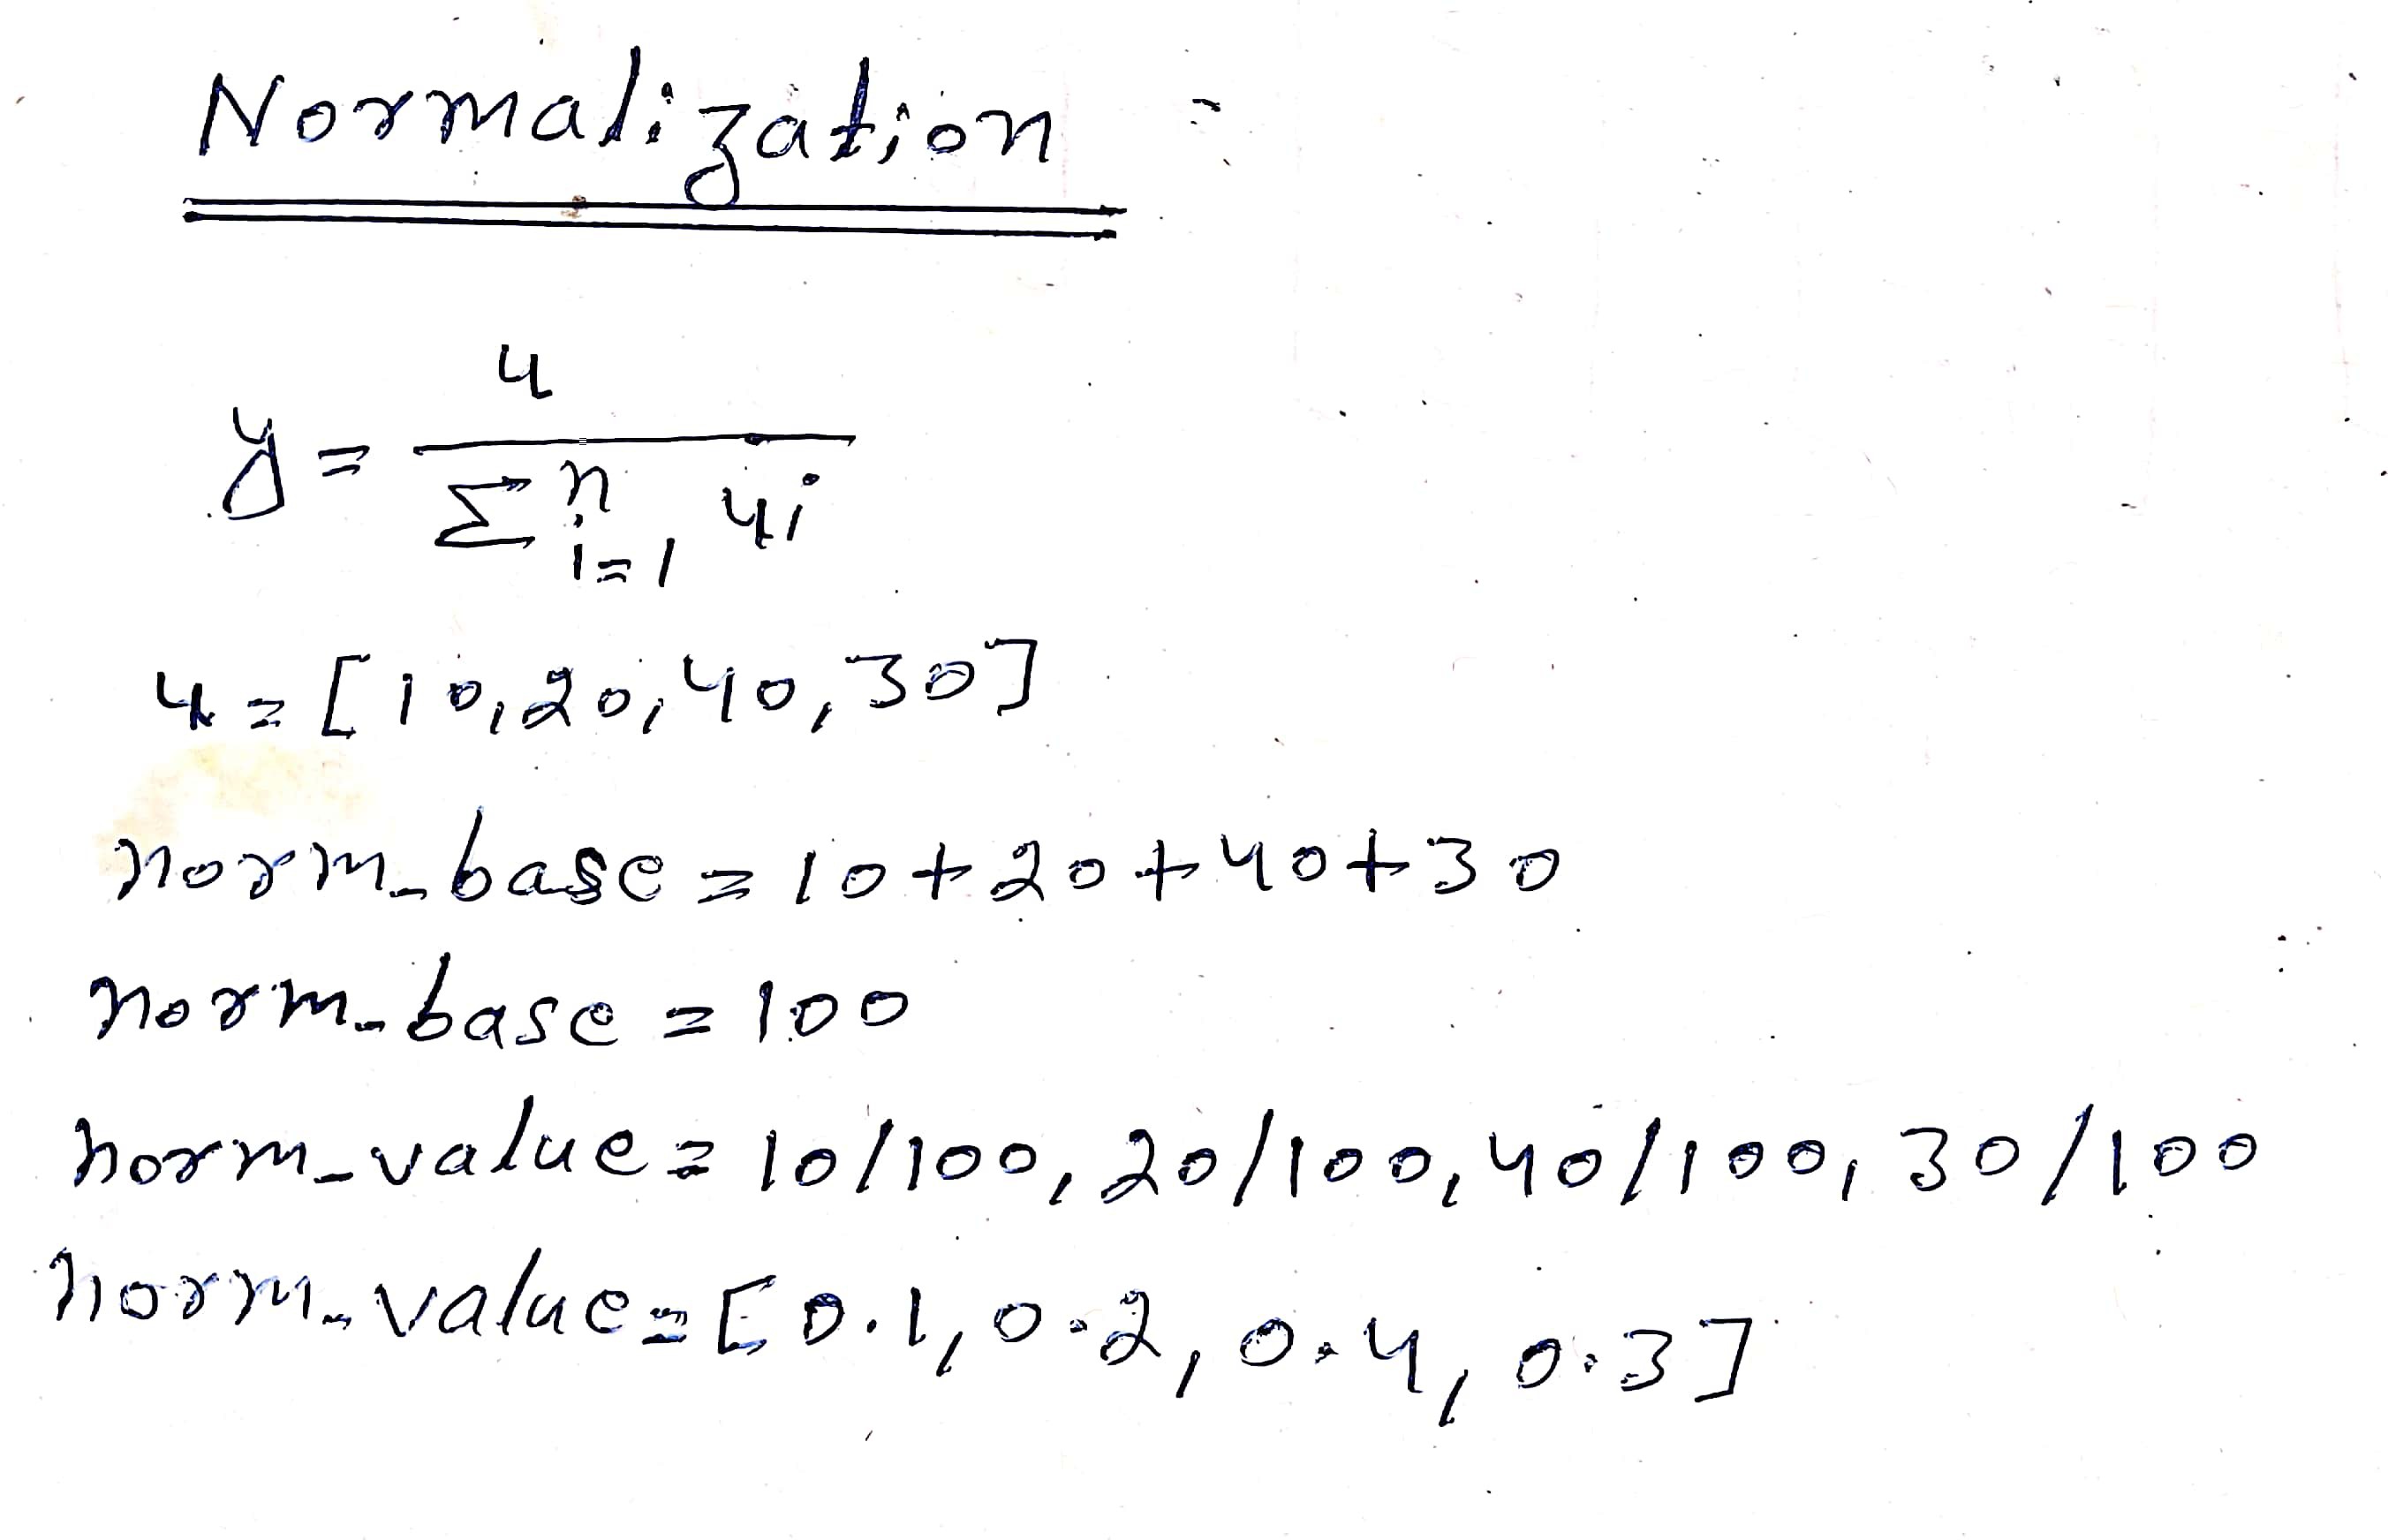 Normalization
y = u / Σ^n_{i=1} ui
u = [10,20,40,30]
norm_base = 10+20+40+30
norm_base = 100
norm_value = 10/100, 20/100, 40/100, 30/100
norm_value = [0.1, 0.2, 0.4, 0.3]